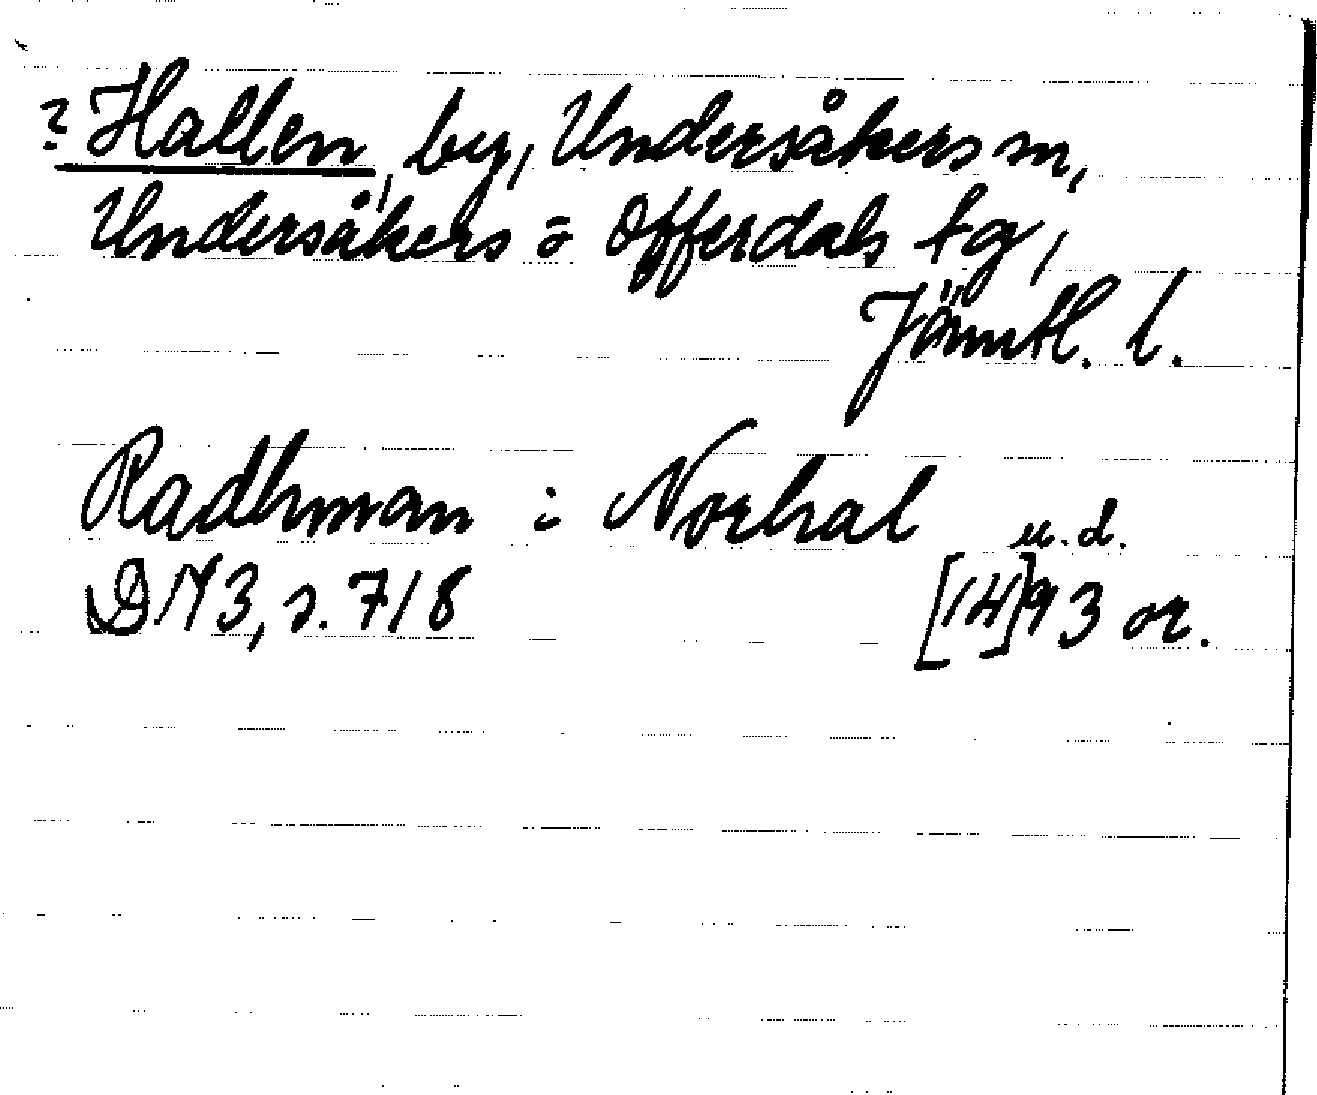 ? Hallen, by, Undersåkers sn,
Undersåkers o Offerdals tg,
Jämtl. l.
Radhman i Norhal
u.d.
DN 3, s. 718 [14]93 or.